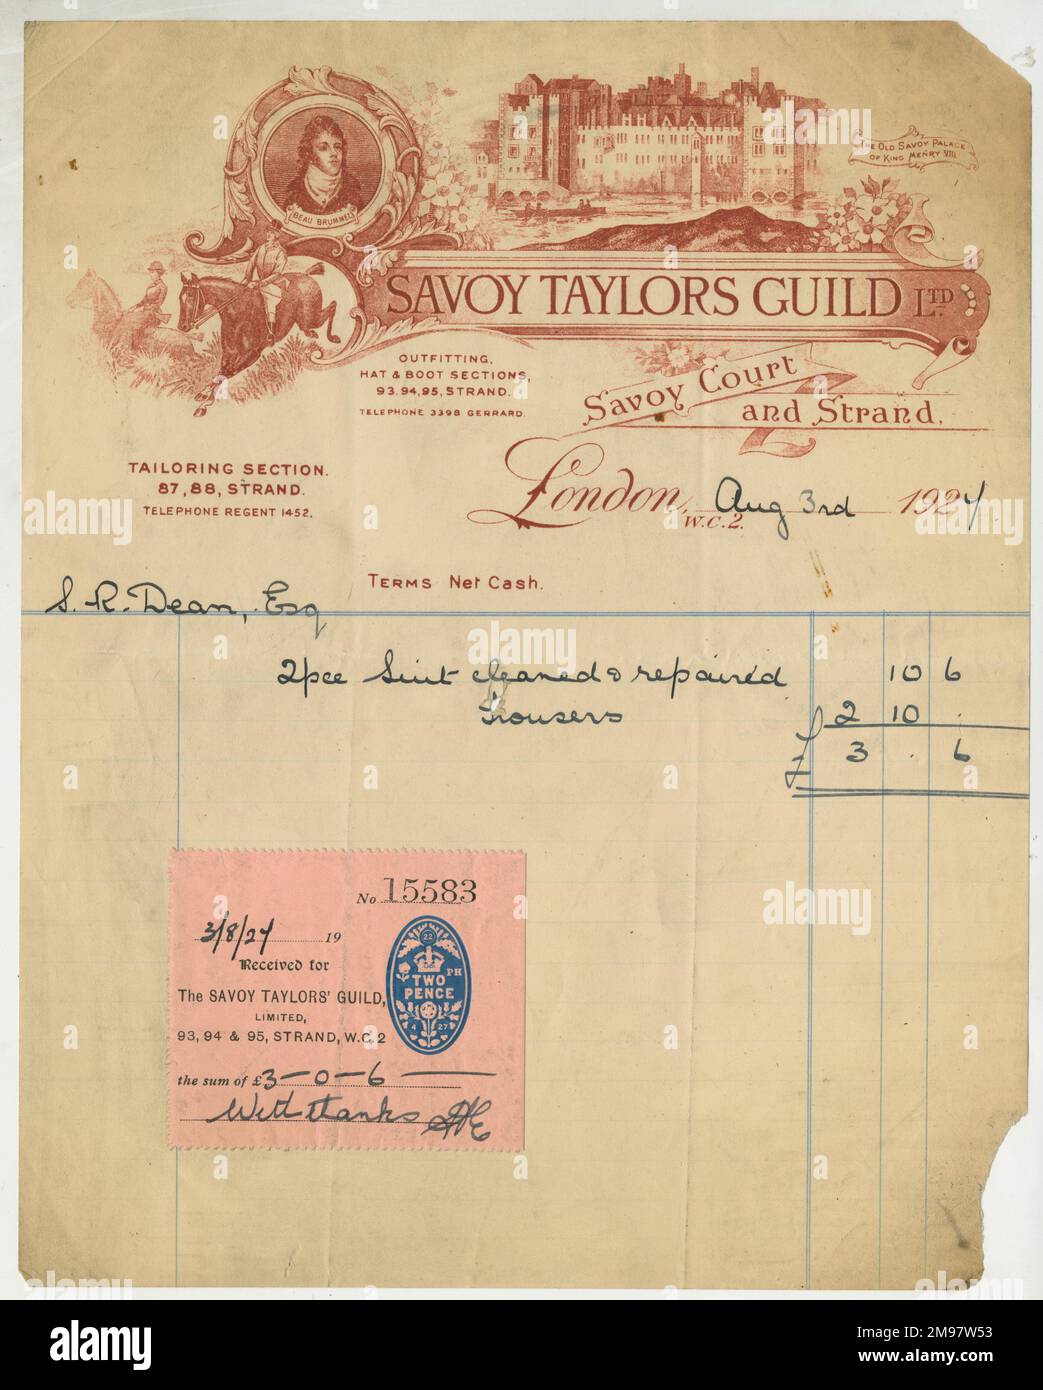 THE OLD SAVOY PALACE
OF KING HENRY VIII
BEAU BRUMMEL
SAVOY TAYLORS GUILD LTD
OUTFITTING,
HAT & BOOT SECTIONS,
93,94,95, STRAND.
TELEPHONE 3398 GERRARD.
Savoy Court
and Strand.
TAILORING SECTION.
87, 88, STRAND.
TELEPHONE REGENT 1452.
London, Aug 3rd 1927
W.C.2.
TERMS Net Cash.
S. R. Dean, Esq
2pce Suit cleaned & repaired 10 6
Trousers 2 10 .
£ 3 . 6
No 15583
3/8/27 19
Received for
The SAVOY TAYLORS' GUILD,
LIMITED,
93, 94 & 95, STRAND, W.C.2
22
TWO PH
PENCE
4 27
the sum of £3-0-6
With thanks
alamy
Image ID: 2M97W53
www.alamy.com